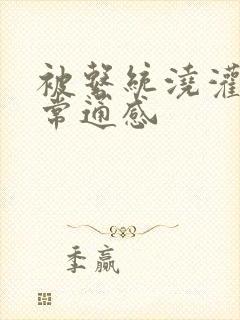 被系统浇灌
常通感
季赢